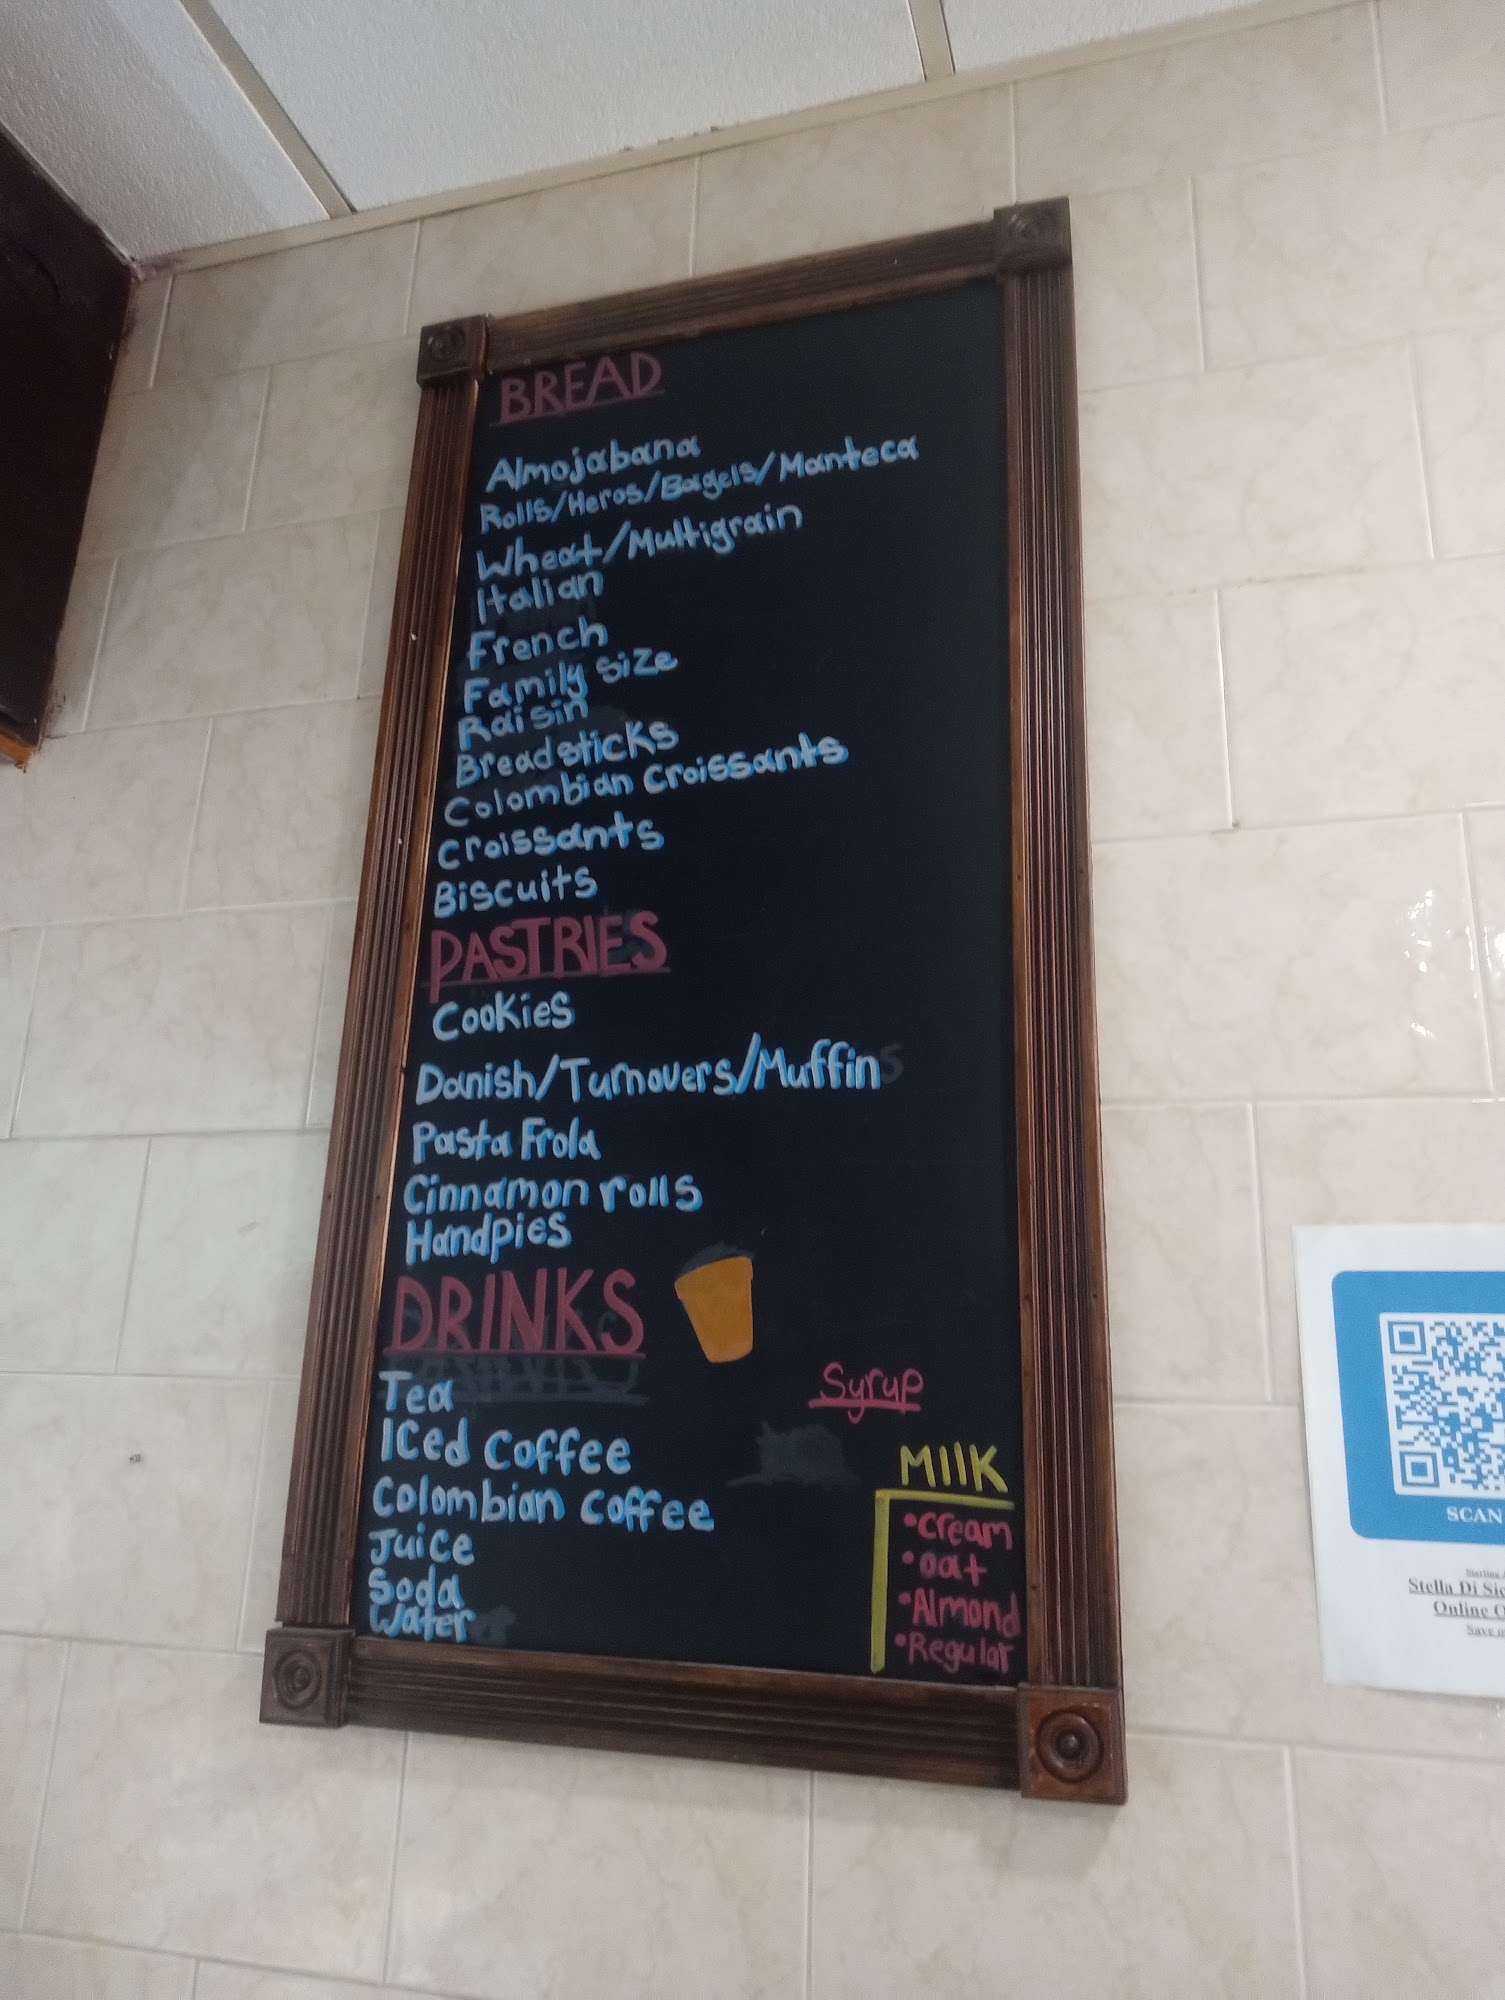 BREAD
Almojabana
Rolls/Heros/Bagels/Manteca
Wheat/Multigrain
Italian
French
Family Size
Raisin
Breadsticks
Colombian Croissants
Croissants
Biscuits
PASTRIES
Cookies
Danish/Turnovers/Muffin
Pasta Frola
Cinnamon rolls
Handpies
DRINKS
Tea
Iced Coffee
Colombian Coffee
Juice
Soda
Water
Syrup
Milk
•Cream
•Oat
•Almond
•Regular
SCAN
Starting
Stella Di
Online
Save